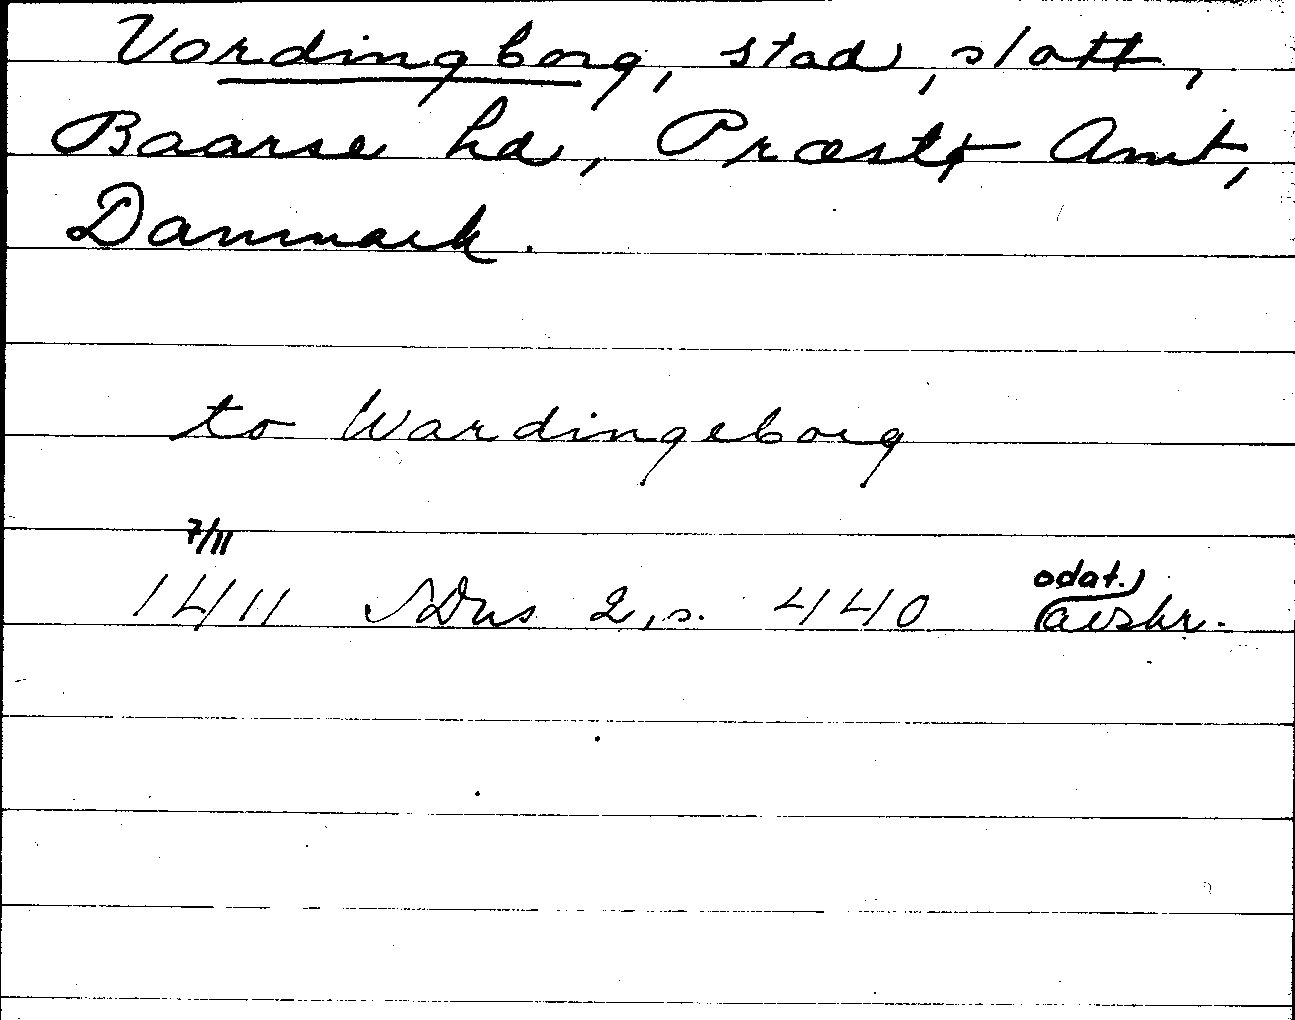 Vordingborg, stad, slott,
Baarse hd, Præstø Amt,
Danmark.
to Wardingeborg
7/11
1411 SDns 2, s. 440 odat.) avskr.